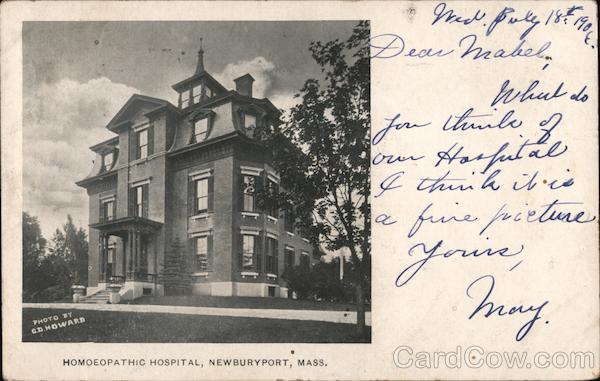 Wed. July 18th 1906.
Dear Mabel,
What do
you think of
our Hospital
I think it is
a fine picture
Yours,
May.
PHOTO BY
G.D. HOWARD
HOMOEOPATHIC HOSPITAL, NEWBURYPORT, MASS.
CardCow.com